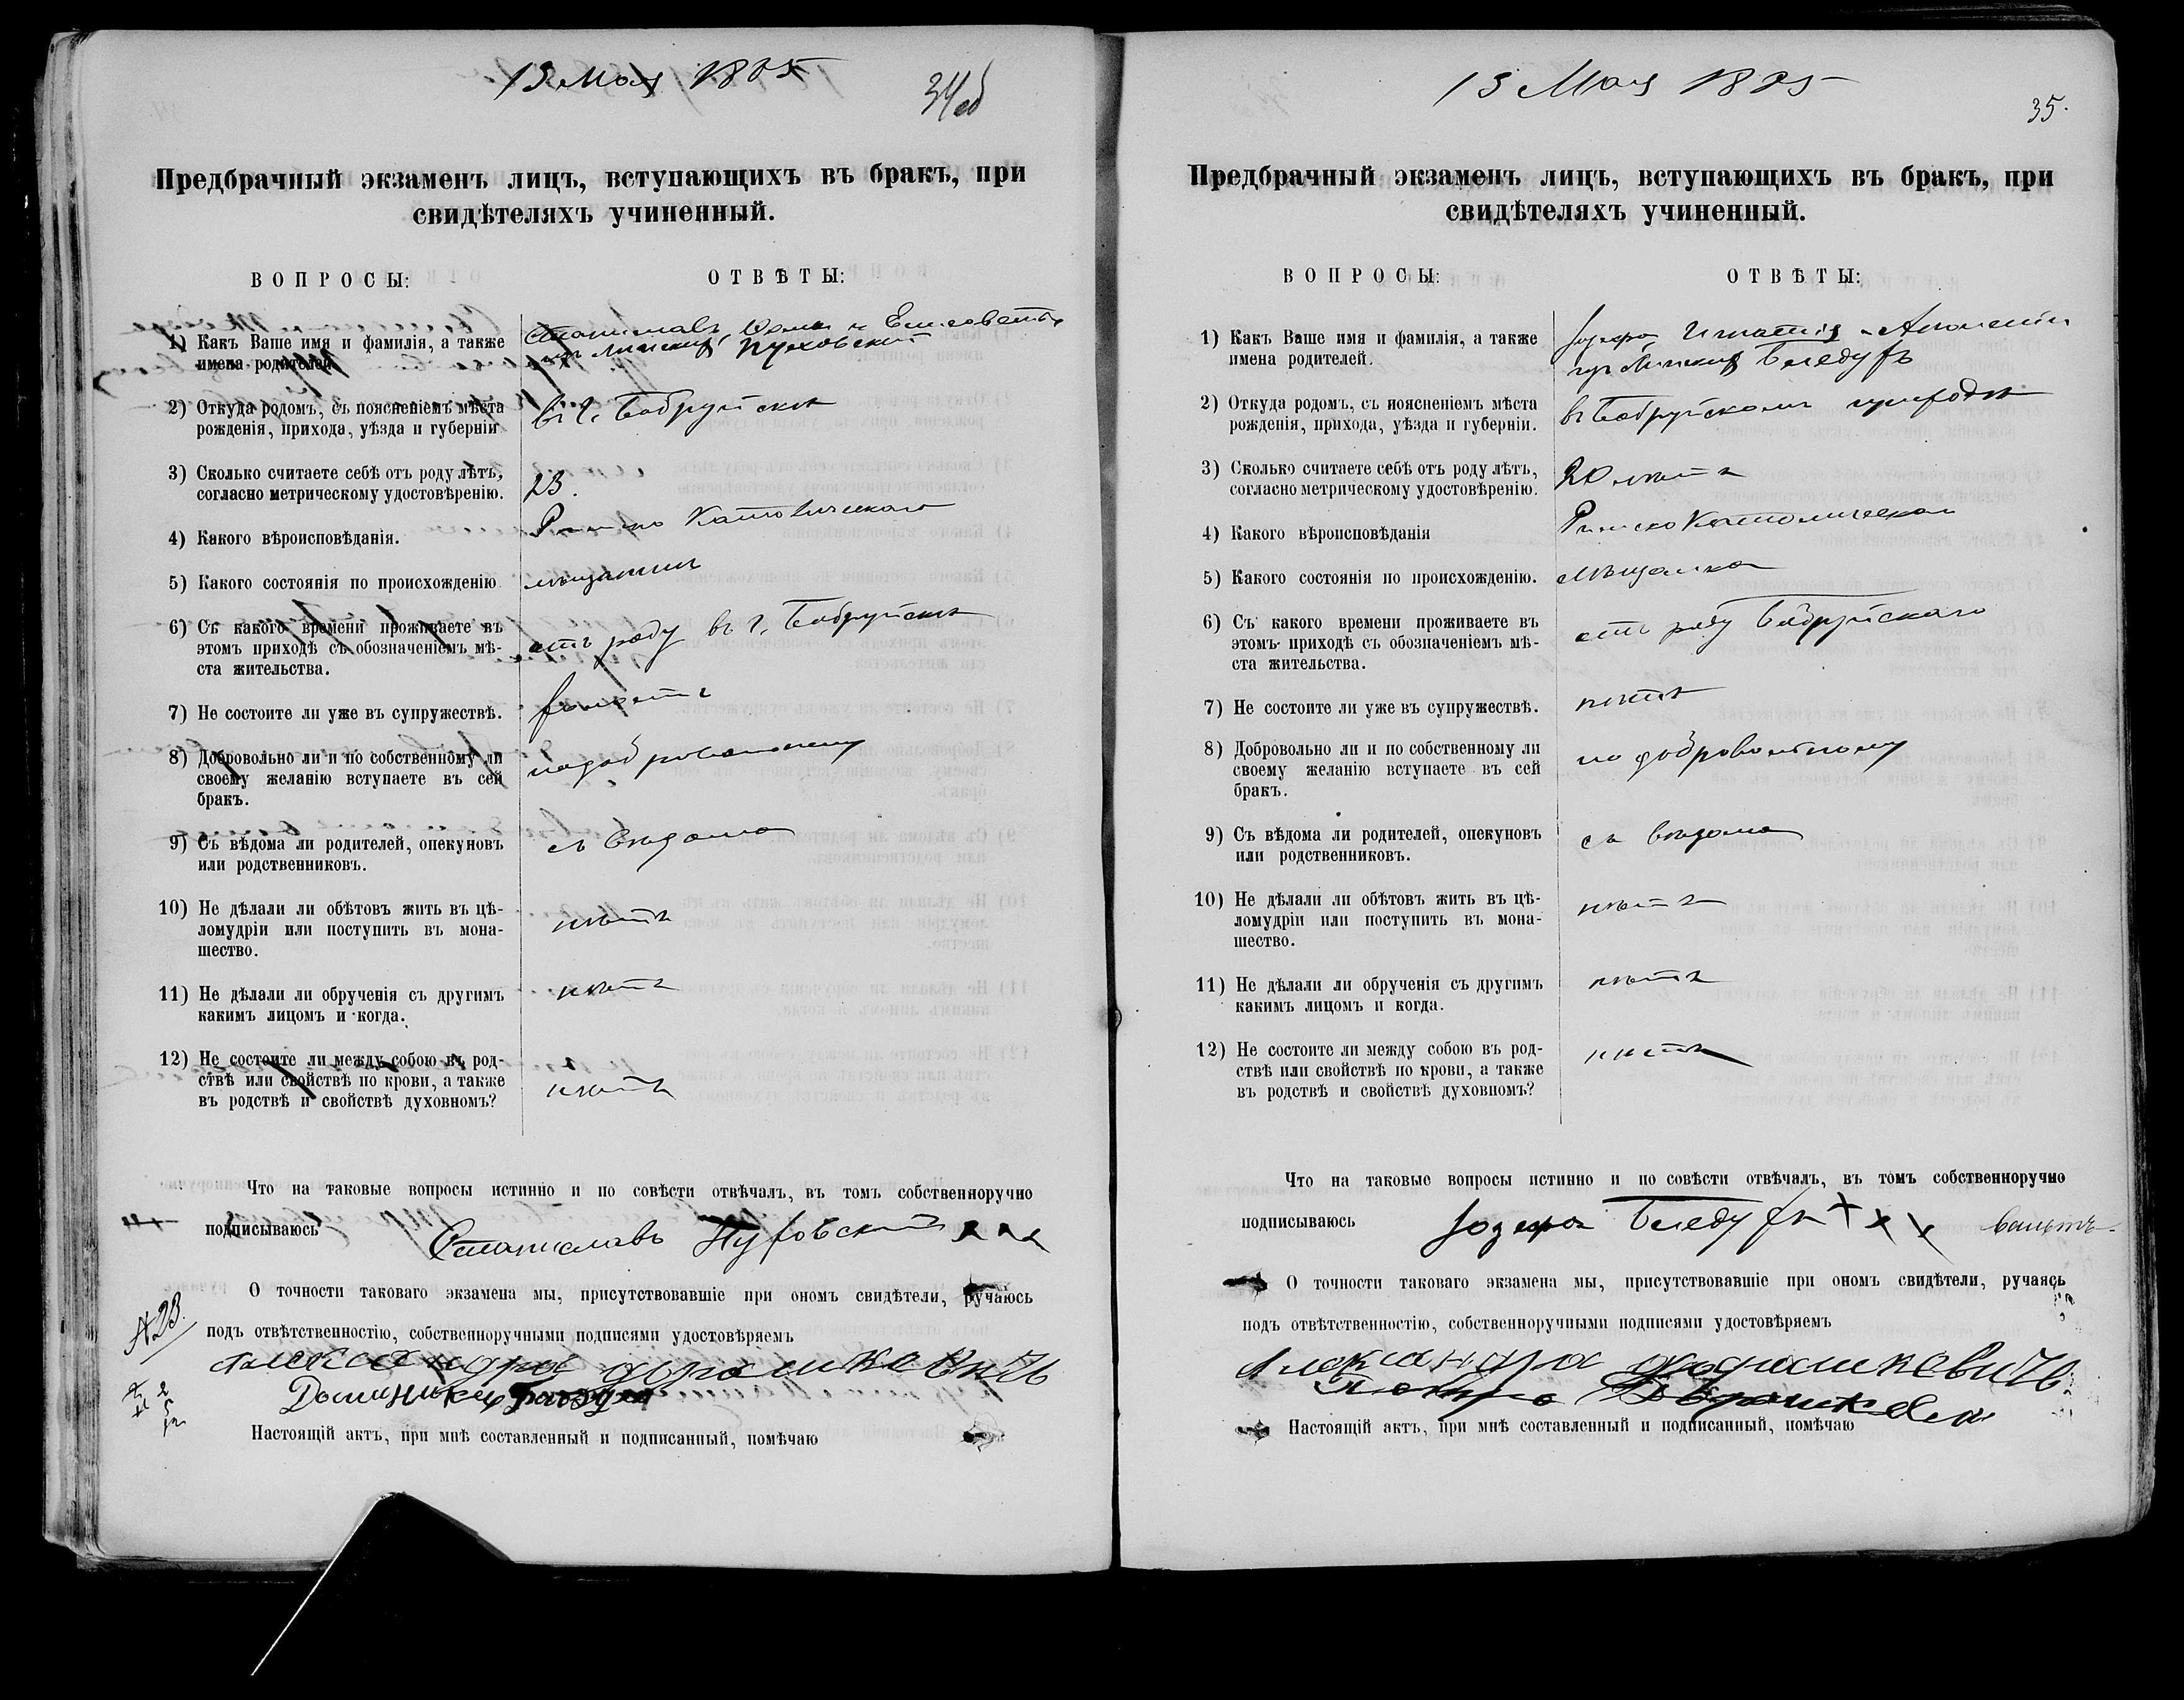 13 Мая 1885
34об
Предбрачный экзаменъ лицъ, вступающихъ въ бракъ, при
свидѣтеляхъ учиненный.
ВОПРОСЫ:
ОТВѢТЫ:
1) Какъ Ваше имя и фамилія, а также
имена родителей.
Станиславъ, и Елисаветы
2) Откуда родомъ, съ поясненіемъ мѣста
рожденія, прихода, уѣзда и губерніи
въ г. Бобруйскѣ
3) Сколько считаете себѣ отъ роду лѣтъ,
согласно метрическому удостовѣренію.
23.
4) Какого вѣроисповѣданія.
Римско Католическаго
5) Какого состоянія по происхожденію
мѣщанинъ
6) Съ какого времени проживаете въ
этомъ приходѣ съ обозначеніемъ мѣ-
ста жительства.
отъ роду въ г. Бобруйскѣ
7) Не состоите ли уже въ супружествѣ.
8) Добровольно ли и по собственному ли
своему желанію вступаете въ сей
бракъ.
9) Съ вѣдома ли родителей, опекуновъ
или родственниковъ.
съ вѣдома
10) Не дѣлали ли обѣтовъ жить въ цѣ-
ломудріи или поступить въ мона-
шество.
нѣтъ
11) Не дѣлали ли обрученія съ другимъ
какимъ лицомъ и когда.
нѣтъ
12) Не состоите ли между собою въ род-
ствѣ или свойствѣ по крови, а также
въ родствѣ и свойствѣ духовномъ?
нѣтъ
Что на таковые вопросы истинно и по совѣсти отвѣчалъ, въ томъ собственноручно
подписываюсь
Станиславъ xxx
О точности таковаго экзамена мы, присутствовавшіе при ономъ свидѣтели, ручаюсь
подъ отвѣтственностію, собственноручными подписями удостовѣряемъ
Настоящій актъ, при мнѣ составленный и подписанный, помѣчаю
13 Мая 1885
35.
Предбрачный экзаменъ лицъ, вступающихъ въ бракъ, при
свидѣтеляхъ учиненный.
ВОПРОСЫ:
ОТВѢТЫ:
1) Какъ Ваше имя и фамилія, а также
имена родителей.
Іозефа, Игнатія
2) Откуда родомъ, съ поясненіемъ мѣста
рожденія, прихода, уѣзда и губерніи.
въ Бобруйскомъ
3) Сколько считаете себѣ отъ роду лѣтъ,
согласно метрическому удостовѣренію.
20 лѣтъ
4) Какого вѣроисповѣданія
Римско Католическаго
5) Какого состоянія по происхожденію.
мѣщанка
6) Съ какого времени проживаете въ
этомъ приходѣ съ обозначеніемъ мѣ-
ста жительства.
отъ роду Бобруйскаго
7) Не состоите ли уже въ супружествѣ.
нѣтъ
8) Добровольно ли и по собственному ли
своему желанію вступаете въ сей
бракъ.
по добровольному
9) Съ вѣдома ли родителей, опекуновъ
или родственниковъ.
съ вѣдома
10) Не дѣлали ли обѣтовъ жить въ цѣ-
ломудріи или поступить въ мона-
шество.
нѣтъ
11) Не дѣлали ли обрученія съ другимъ
какимъ лицомъ и когда.
нѣтъ
12) Не состоите ли между собою въ род-
ствѣ или свойствѣ по крови, а также
въ родствѣ и свойствѣ духовномъ?
нѣтъ
Что на таковые вопросы истинно и по совѣсти отвѣчалъ, въ томъ собственноручно
подписываюсь
Іозефа xxx
О точности таковаго экзамена мы, присутствовавшіе при ономъ свидѣтели, ручаясь
подъ отвѣтственностію, собственноручными подписями удостовѣряемъ
Настоящій актъ, при мнѣ составленный и подписанный, помѣчаю